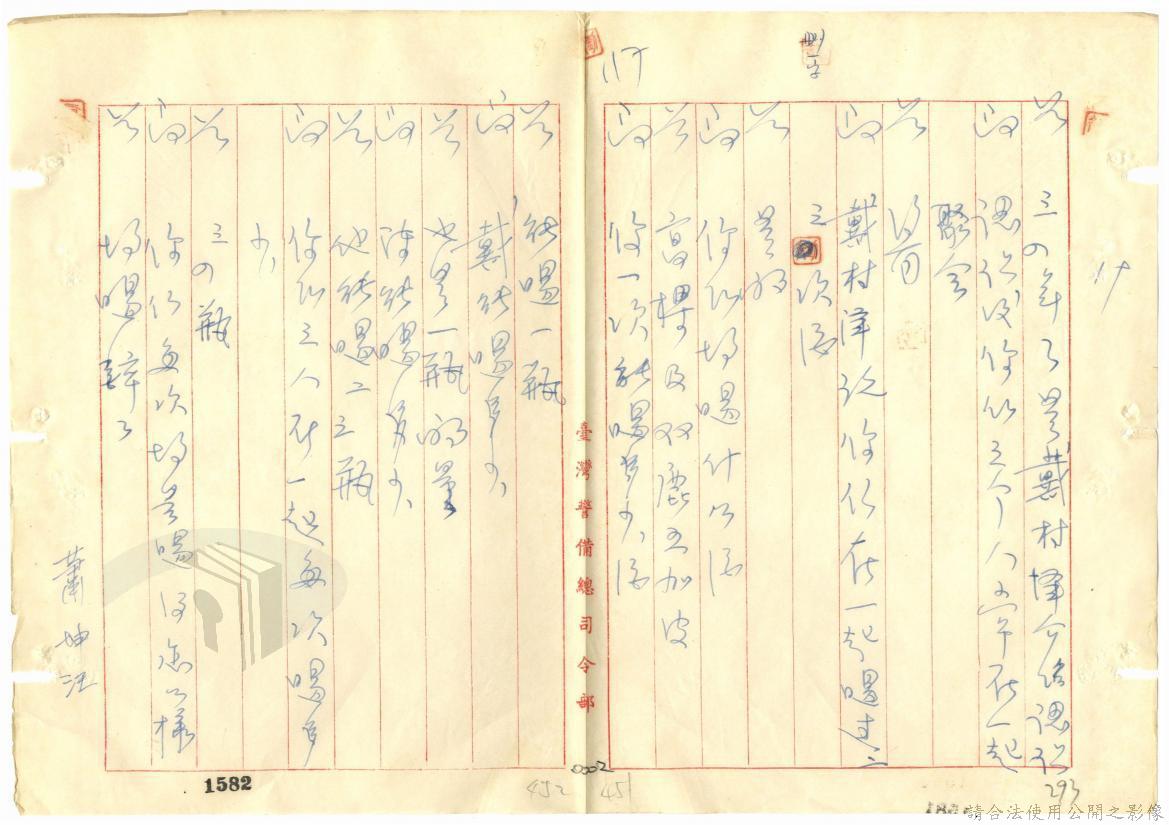 答 三四年了是戴村澤介紹認識
問 認識後你们三个人常在一起
聚会
答 沒有
問 戴村澤說你们在一起喝过二
三次酒
答 是的
問 你们都喝什么酒
答 高梁及双鹿五加皮
問 你一次能喝多少酒
答 能喝一瓶
問 戴能喝多少
答 也是一瓶的量
問 陳能喝多少
答 他能喝二三瓶
問 你们三人在一起每次喝多
少
答 三四瓶
問 你们每次都是喝得怎么樣
答 都喝醉了
蕭坤旺
臺灣警備總司令部
刪一字
117
1582
452
0002
451
293
請合法使用公開之影像